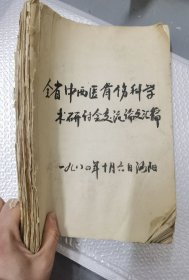 全省中西医骨伤科学
术研讨会交流论文汇篇
一九八〇年十月六日洛阳